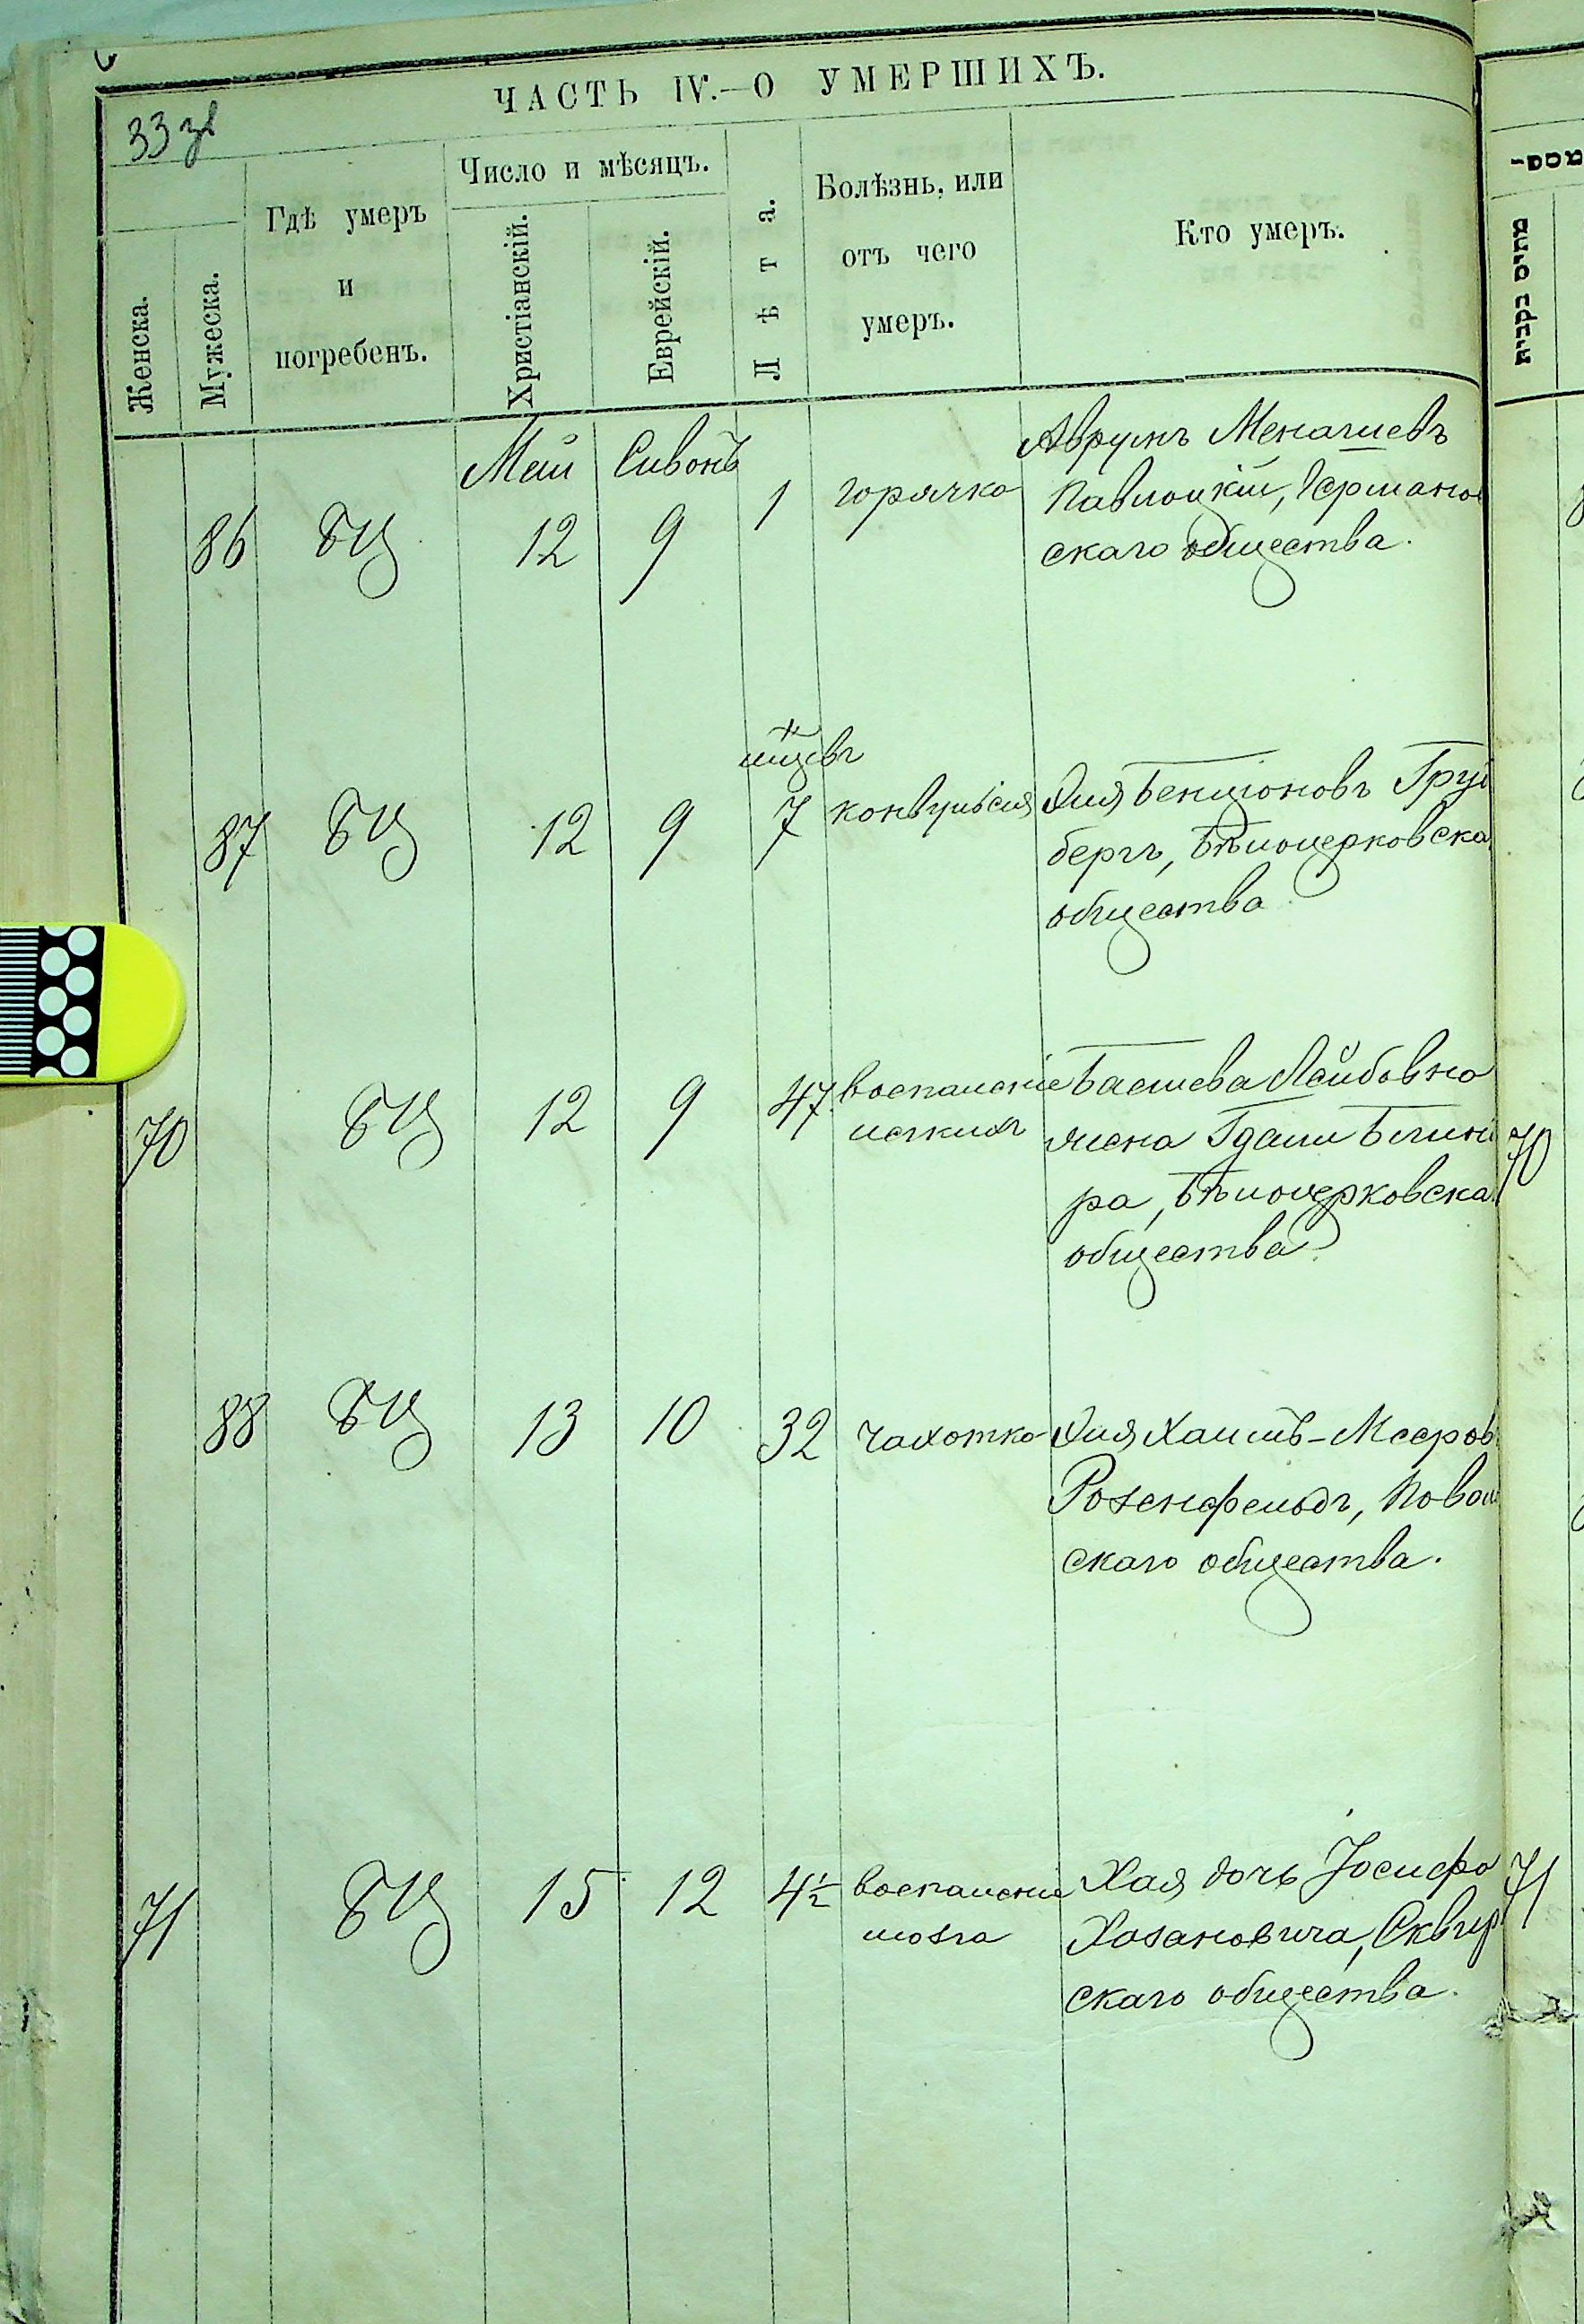 ЧАСТЬ IV.—О УМЕРШИХЪ.
33
Женска.
Мужеска.
Гдѣ умеръ
и
погребенъ.
Число и мѣсяцъ.
Христіанскій.
Еврейскій.
Лѣта.
Болѣзнь, или
отъ чего
умеръ.
Кто умеръ.
מתים בקבית
Май Сивонъ
86 БЦ 12 9 1 горячка
Аврумъ Менашевъ
Паволоцкій, Германов
скаго общества.
87 БЦ 12 9 7 конвульсія
Эля Бенціоновъ
бергъ, Бѣлоцерковска
общества
70 БЦ 12 9 47 воспаленіе
легкихъ
Басшева Лейбовна
жена
ра, Бѣлоцерковска
общества
70
88 БЦ 13 10 32 чахотка
Эля Хаимъ-Мееров
Розенфельдъ, Повол
скаго общества.
71 БЦ 15 12 4½ воспаленіе
мозга
Хая дочь Іосифа
Хазановича, Сквир
скаго общества.
71